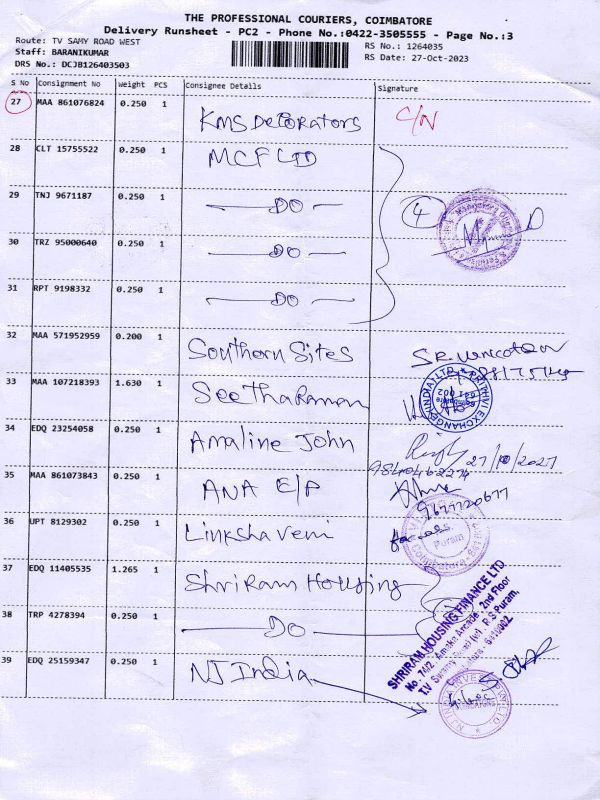 THE PROFESSIONAL COURIERS, COIMBATORE
Delivery Runsheet - PC2 - Phone No.:0422-3505555 - Page No.:3
Route: TV SAMY ROAD WEST
RS No.: 1264035
Staff: BARANIKUMAR
RS Date: 27-Oct-2023
DRS No.: DCJB126403503
S No Consignment No Weight PCS Consignee Details Signature
27 MAA 861076824 0.250 1 KMS DECORATORS C/N
28 CLT 15755522 0.250 1 MCF LTD
29 TNJ 9671187 0.250 1 DO 4
30 TRZ 95000640 0.250 1 DO
31 RPT 9198332 0.250 1 DO
32 MAA 571952959 0.200 1 Southern Sites
33 MAA 107218393 1.630 1 Seetharaman
PRITHVI EXCHANGE (INDIA) LTD
34 EDQ 23254058 0.250 1 Amaline John
27/10/2027
35 MAA 861073843 0.250 1 ANA E/P
9677720677
36 UPT 8129302 0.250 1 Linkshaveni
Puram
37 EDQ 11405535 1.265 1 Shriram Housing
38 TRP 4278394 0.250 1 DO
SHRIRAM HOUSING FINANCE LTD
No. 74/2, Amako Arcade, 2nd Floor
T.V Swamy Road (w), R S Puram,
39 EDQ 25159347 0.250 1 NJ India